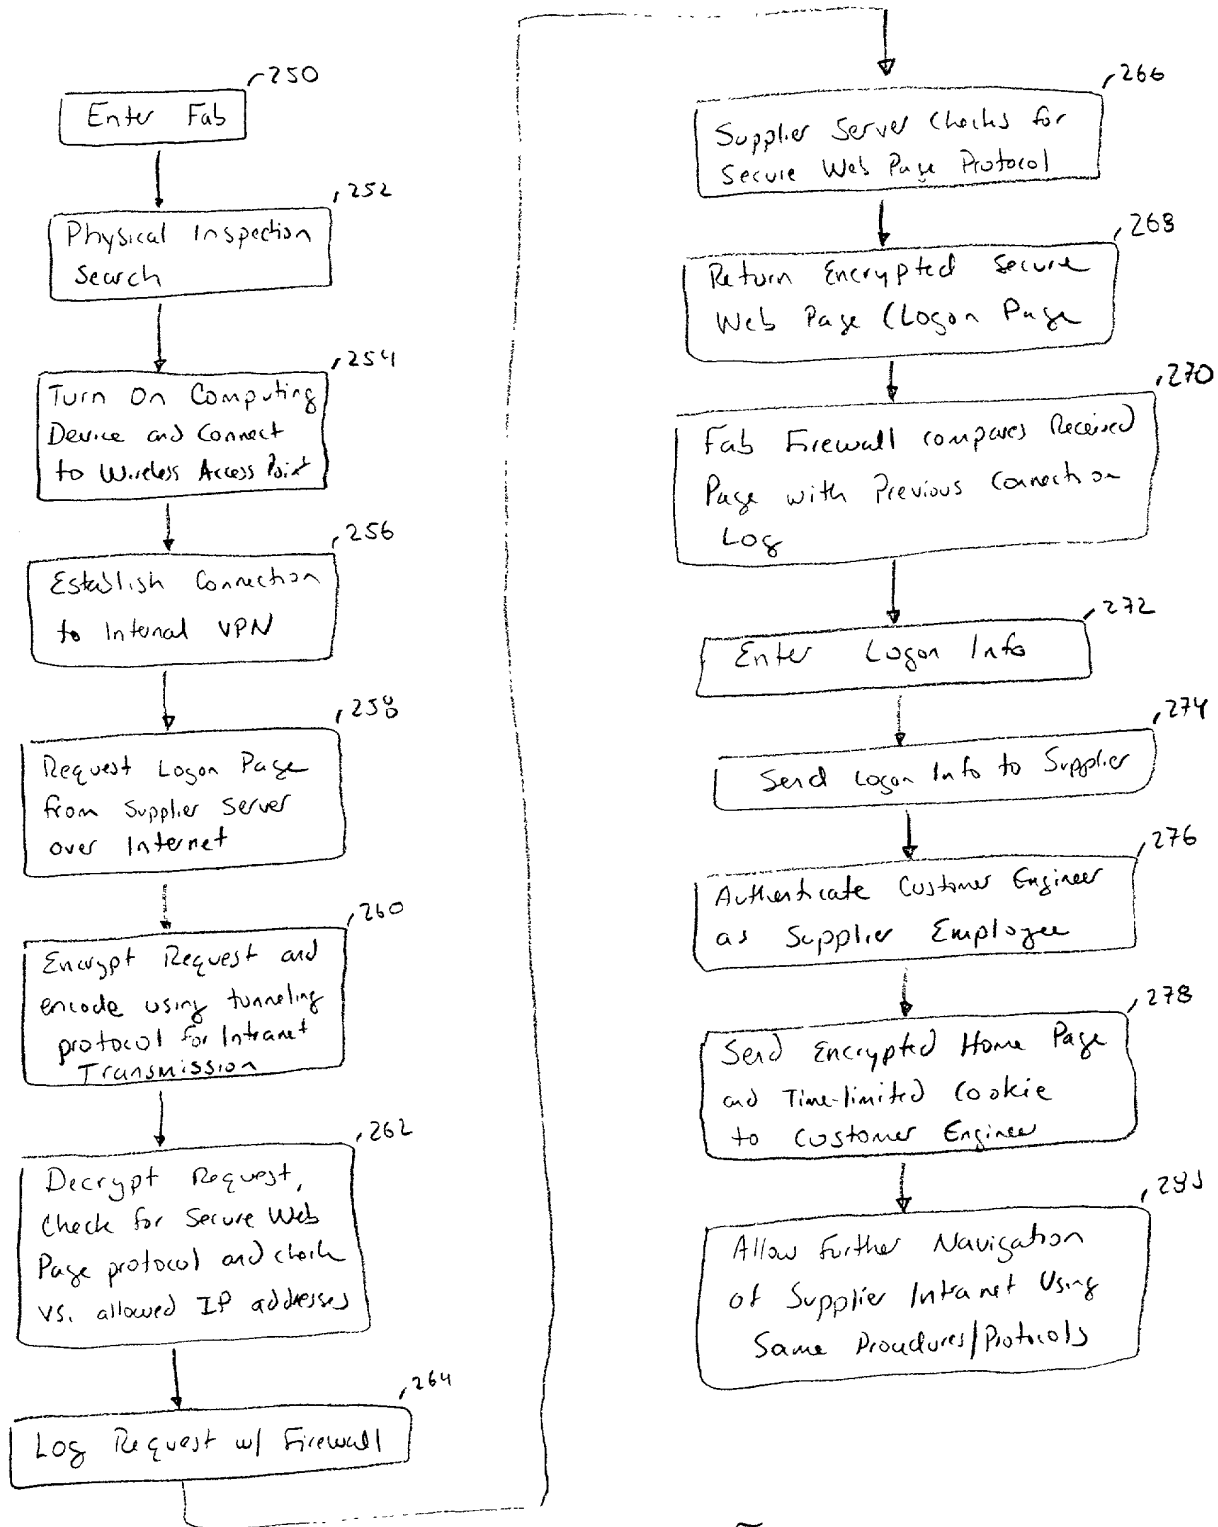 250
Enter Fab
252
Physical Inspection
Search
254
Turn On Computing
Device and Connect
to Wireless Access Point
256
Establish Connection
to Internal VPN
258
Request Logon Page
from Supplier Server
over Internet
260
Encrypt Request and
encode using tunneling
protocol for Intranet
Transmission
262
Decrypt Request,
Check for Secure Web
Page protocol and check
vs. allowed IP addresses
264
Log Request w/ Firewall
266
Supplier Server Checks for
Secure Web Page Protocol
268
Return Encrypted Secure
Web Page (Logon Page
270
Fab Firewall compares Received
Page with Previous Connection
Log
272
Enter Logon Info
274
Send Logon Info to Supplier
276
Authenticate Customer Engineer
as Supplier Employee
278
Send Encrypted Home Page
and Time-limited Cookie
to Customer Engineer
Allow Further Navigation
of Supplier Intranet Using
Same Procedures/Protocols